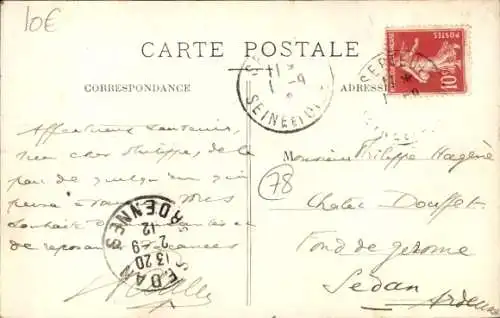 10€
CARTE POSTALE
CORRESPONDANCE
ADRESSE
SEINE ET OISE
POSTES
10c
Affectueux souvenirs,
mon cher Philippe, de la
part de quelqu'un qui
pense à vous.
souhaits
de repos vacances
SEDAN
ARDENNES
1320
2-9
12
Monsieur Philippe Hagène
78
Chalet Douffet
Fond de gerome
Sedan
Ardennes